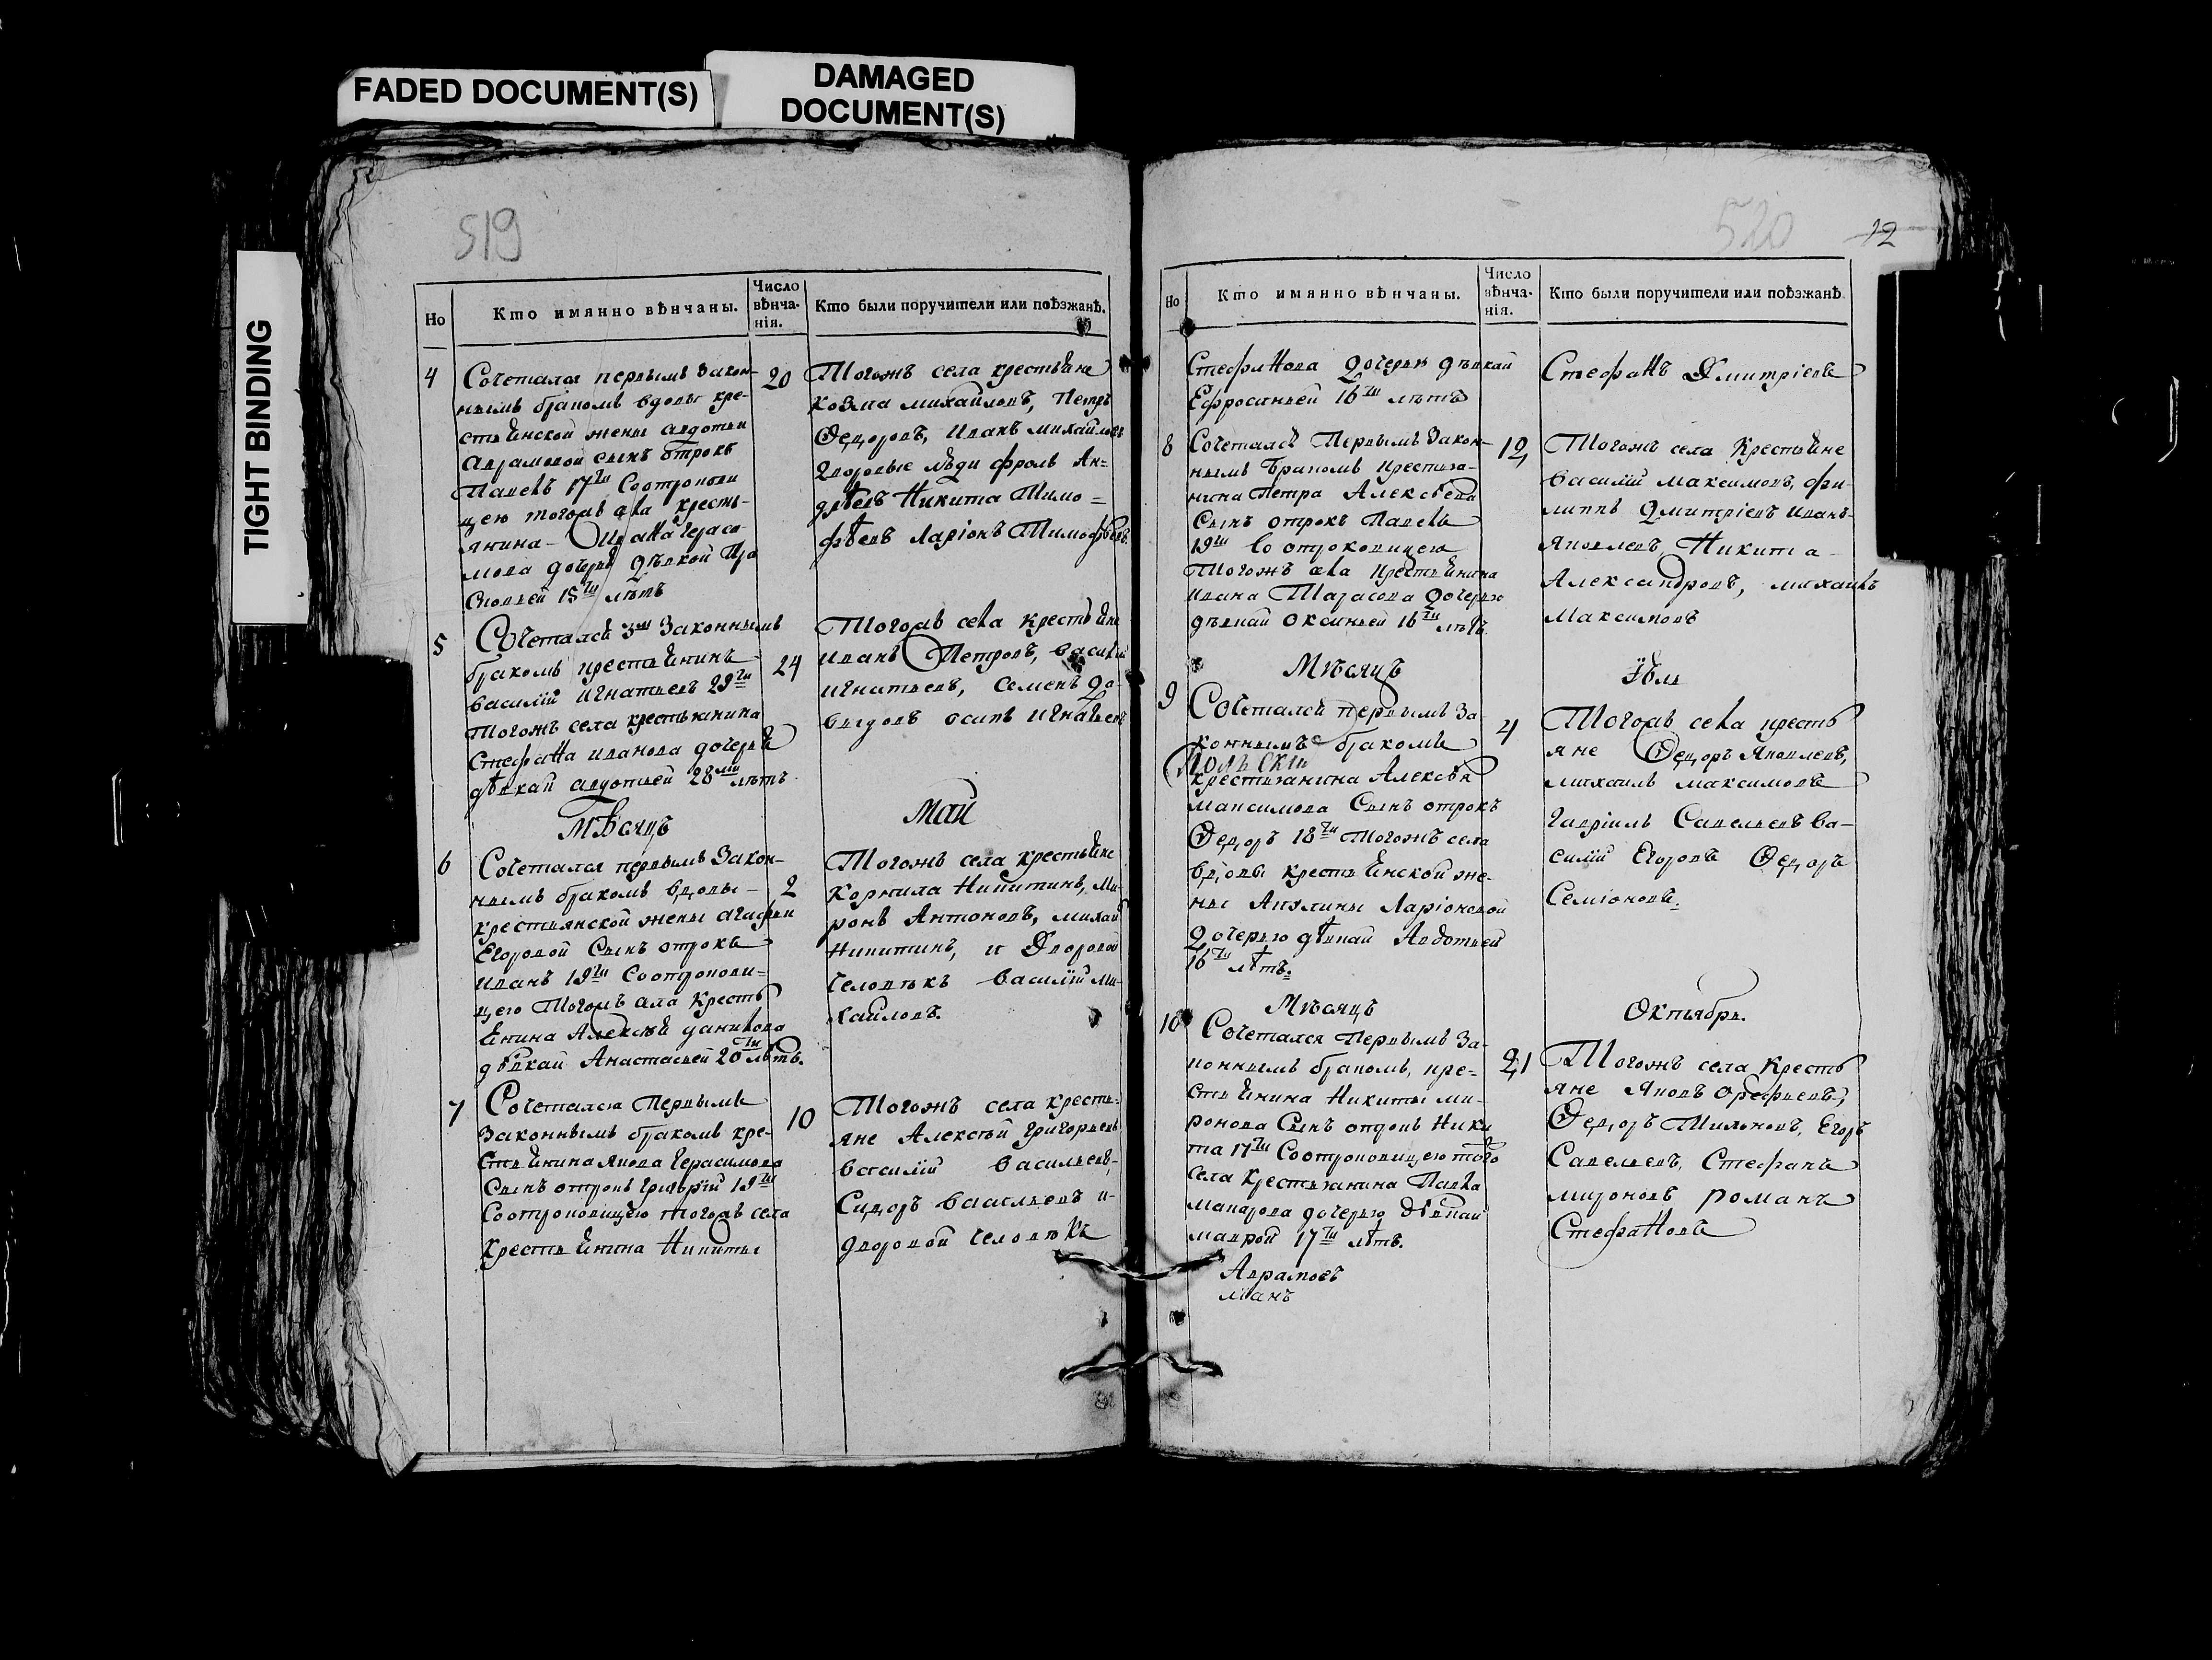 FADED DOCUMENT(S)
DAMAGED
DOCUMENT(S)
TIGHT BINDING
519
Но
Кто имянно вѣнчаны.
Число
вѣнча-
нія.
Кто были поручители или поѣзжанѣ.
4
Сочетался первымъ закон-
нымъ бракомъ вдовы кре-
стьянской жены авдотьи
аврамовой сынъ отрокъ
Павелъ 17ти соотрокови
цею тогожъ села кресть-
янина
мова дочерью дѣвкой Пра
сковьей 15ти лѣтъ
20
Тогожъ села крестьяне
козма михайловъ, Петръ
Ѳедоровъ, иванъ михайловъ
дворовые люди фролъ Ан=
дрѣевъ Никита Тимо=
фѣевъ Ларіонъ Тимофѣевъ.
5
Сочетался 3мъ законнымъ
бракомъ крестьянинъ
василій игнатьевъ 29ти
тогожъ села крестьянина
Стефана иванова дочерью
дѣвкай авдотьей 28ми лѣтъ
24
Тогожъ села крестьяне
иванъ Петровъ, василій
игнатьевъ, семенъ До-
выдовъ осипъ игнатьевъ
Мѣсяцъ
Май
6
Сочетался первымъ закон-
нымъ бракомъ вдовы-
крестьянской жены агафьи
Егоровой Сынъ отрокъ
иванъ 19ти Соотрокови=
цею Тогожъ села кресть
янина Алексѣя данилова
дѣвкай Анастасьей 20ти лѣтъ.
2
Тогожъ села крестьяне
корнила Никитинъ, Ми-
ронъ Антоновъ, михай
Никитинъ, и Дворовой
человѣкъ василій Ми-
хайловъ.
7
Сочетался Первымъ
законнымъ бракомъ кре-
стьянина якова Герасимова
Сынъ отрокъ Григорій 19ти
Соотроковицею тогожъ села
крестьянина Никиты
10
Тогожъ села кресть-
яне Алексѣй григорьевъ
василій васильевъ,
Сидоръ васильевъ и-
дворовой человѣкъ
520
12
Но
Кто имянно вѣнчаны.
Число
вѣнча-
нія.
Кто были поручители или поѣзжанѣ.
Стефанова дочерью дѣвкай
Ефросиньей 16ти лѣтъ
Стефанъ Дмитріевъ
8
Сочетался Первымъ закон-
нымъ бракомъ крестья-
нина Петра Алексѣева
Сынъ отрокъ Павелъ
19ти со отроковицею
Тогожъ села крестьянина
ивана Тарасова дочерью
дѣвкай оксиньей 16ти лѣтъ.
12
Тогожъ села Крестьяне
василій максимовъ, фи-
липпъ Дмитріевъ иванъ-
яковлевъ, Никита-
Александровъ, михаилъ
Максимовъ
Мѣсяцъ
Іюль
9
Сочетался первымъ за-
коннымъ бракомъ
крестьянина Алексѣя
максимова Сынъ отрокъ
Ѳедоръ 18ти тогожъ села
вдовы крестьянской же-
ны Акулины Ларіоновой
дочерью дѣвкай Авдотьей
16ти лѣтъ.
4
Тогожъ села кресть
яне Ѳедоръ Яковлевъ,
михаилъ максимовъ
гавріилъ Савельевъ ва-
силій Егоровъ Ѳедоръ
Семіоновъ.
Мѣсяцъ
Октябрь.
10
Сочетался Первымъ за-
коннымъ бракомъ, кре=
стьянина Никиты ми-
ронова Сынъ отрокъ Ники
та 17ти Соотроковицею того
села крестьянина Павла
макарова дочерью дѣвкай
маврой 17ти лѣтъ.
21
Тогожъ села Кресть
яне Яковъ
Ѳедоръ Тихоновъ, Егоръ
Савельевъ, Стефанъ
мироновъ романъ
Стефановъ